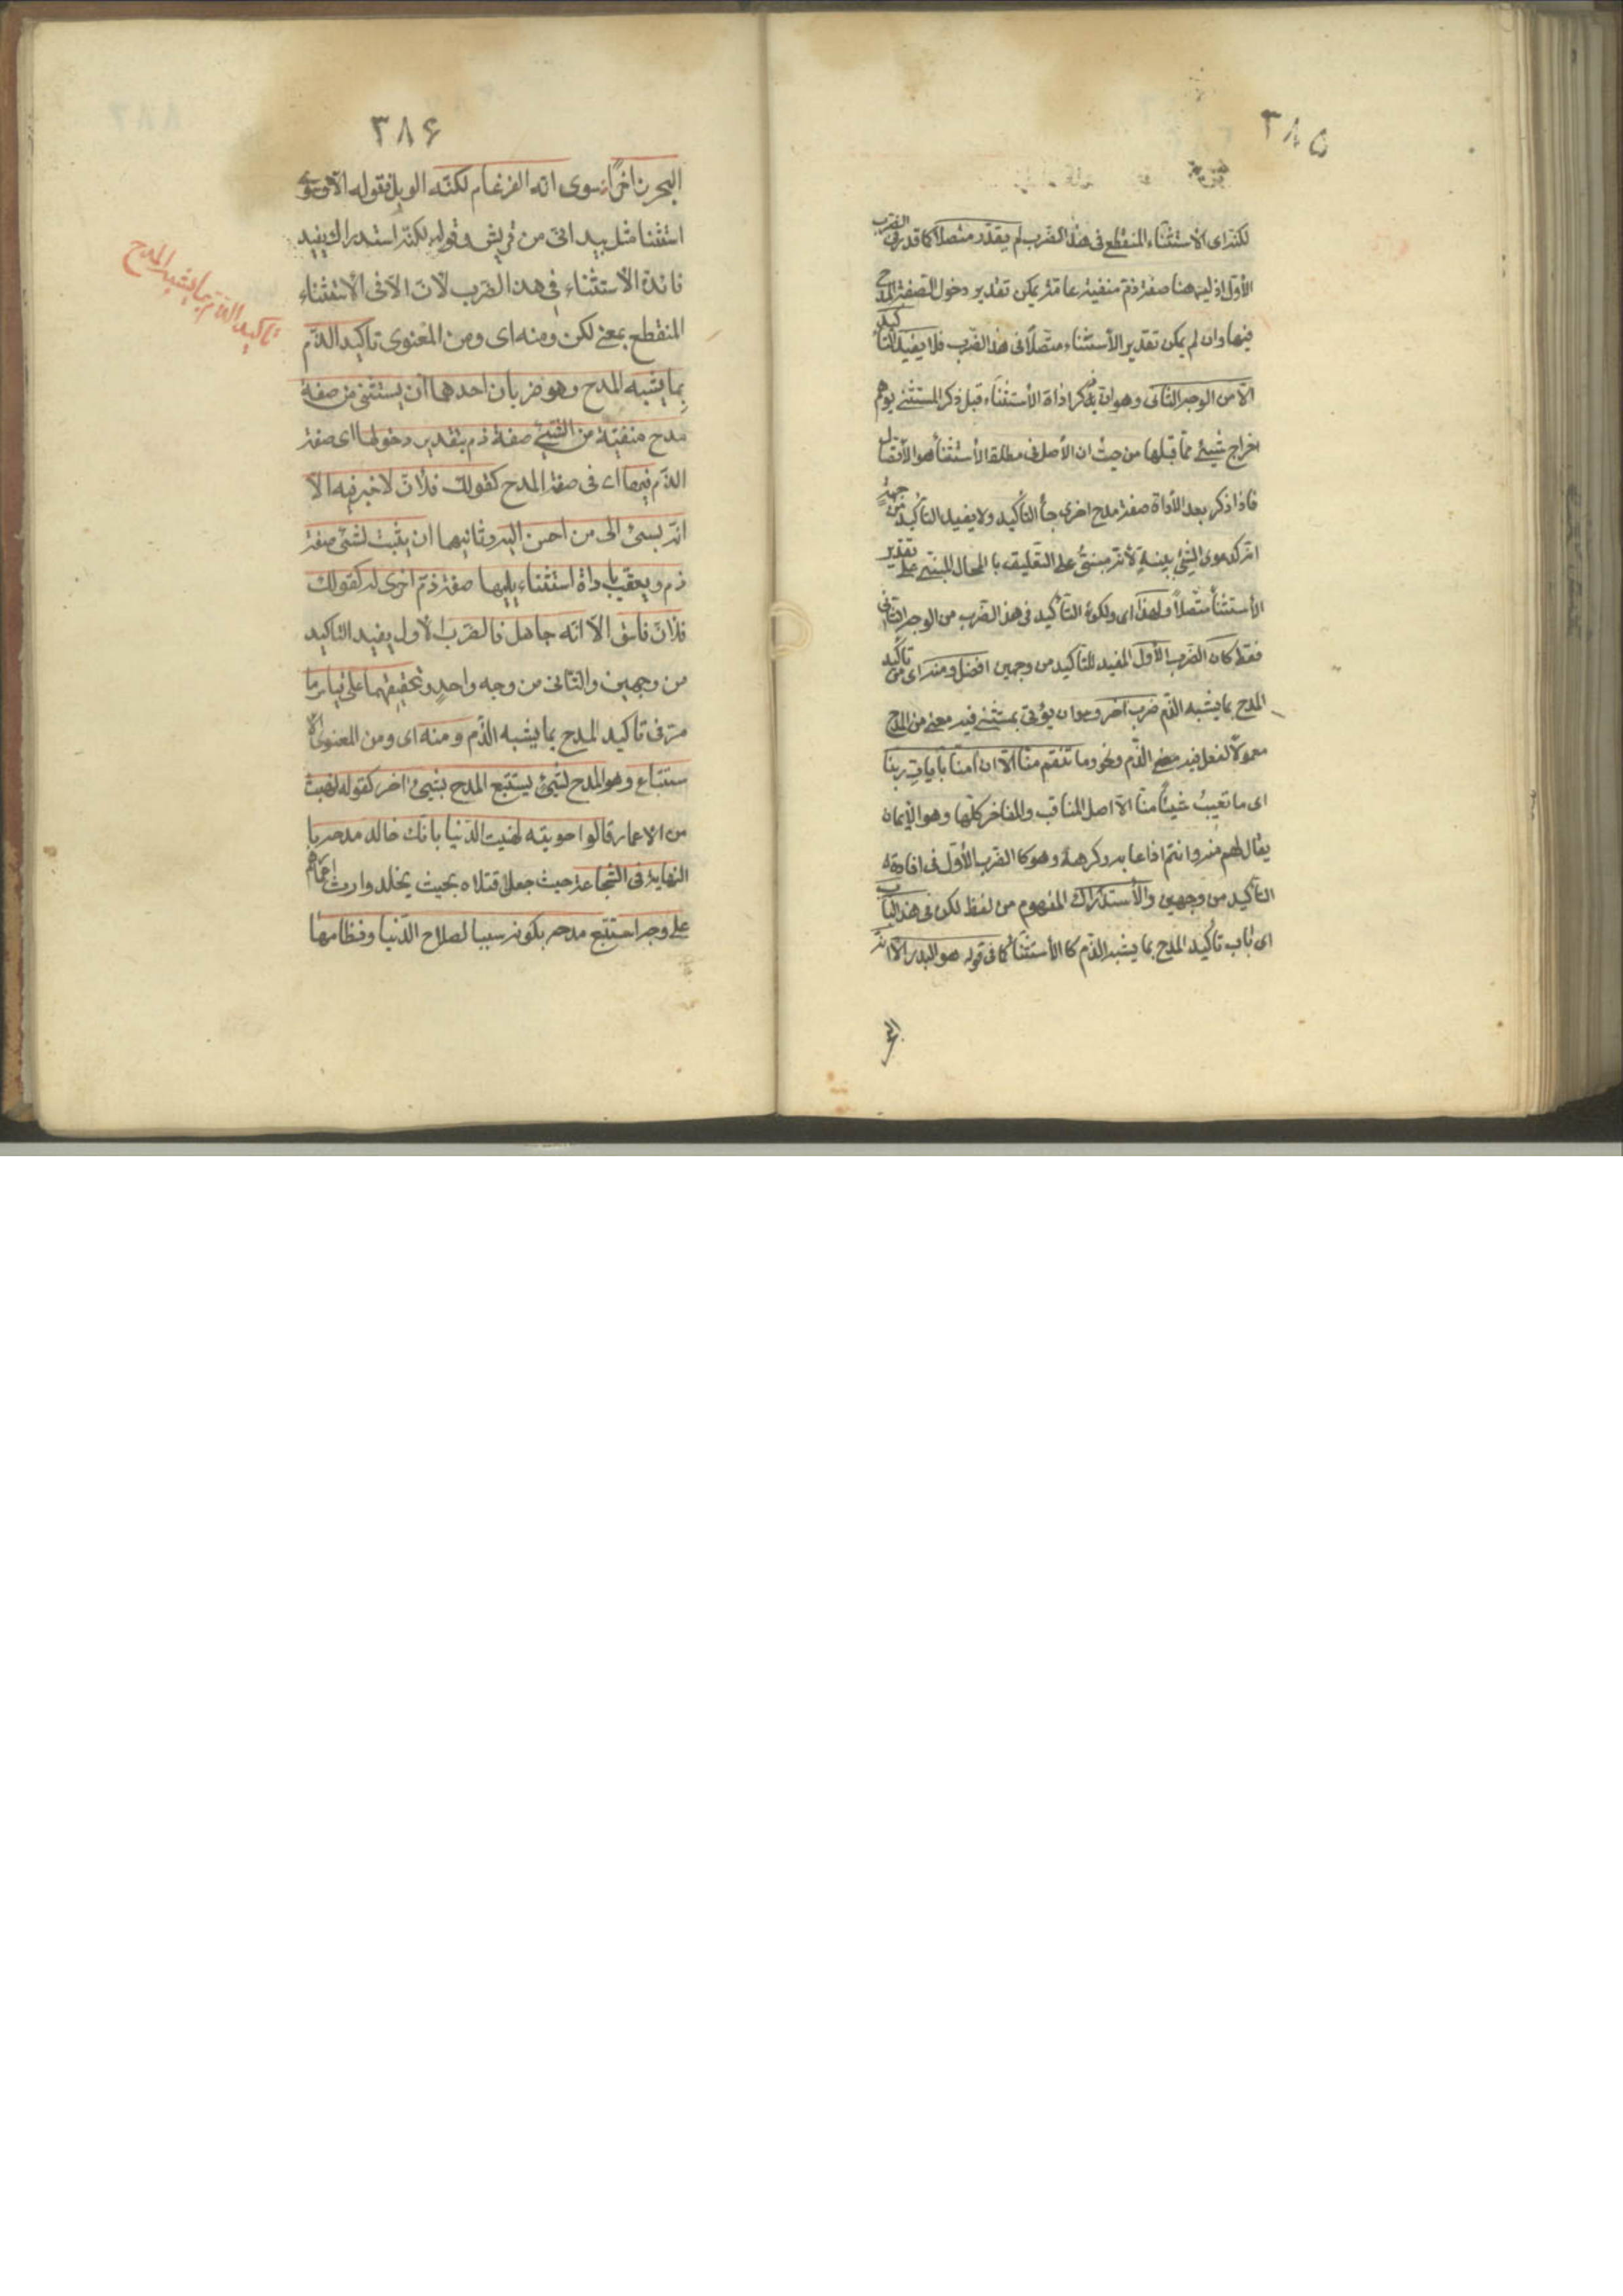 ٣٨٥
لكنه اى الاستثناء المنقطع فى هذا الضرب لم يقدر متصلا كما قدر فى الضرب
الأول اذ ليس هنا صفة ذم منفية عامة يمكن تقدير دخول الصفة المدح
فيها وان لم يمكن تقدير الأستثناء متصلا فى هذا الضرب فلا يفيد التاكيد
الا من الوجه الثانى وهو ان يذكر اداة الأستثناء قبل ذكر المستثنى يوهم
اخراج شيئ مما قبلها من حيث ان الأصل فى مطلق الأستثناء هو الأتصال
فاذا ذكر بعد الأداة صفة مدح اخرى جأ التأكيد ولا يفيد التأكيد من جهة
انه كدعوى الشيئ ببينة لأنه مبنى على التعليق با المحال المبنى على تقدير
الأستثنأ متصلا ولهذا اى ولكون التأكيد فى هذا الضرب من الوجه الثانى
فقط كان الضرب الأول المفيد للتأكيد من وجهين افضل ومنه اى من تأكيد
المدح بما يشبه الذم ضرب آخر وهو ان يؤتى بمستثنى فيه معنى من المدح
معمولا لفعل فيه معنى الذم ونحو وما تنقم منا الا ان آمنا بأيات ربنا
اى ما تعيب شيئا منا الا اصل المناقب والمفاخر كلها وهو الأيمان
يقال نقم منه وانتقم اذا عابه وكرهه وهو كا الضرب الأول فى افادة
التأكيد من وجهين والأستدراك المفهوم من لفظ لكن فى هذا الباب
اى باب تأكيد المدح بما يشبه الذم كا الأستثنأ كما فى قوله هو البدر الا انه
٣٨۶
البحر زاخرا سوى انه الضرغام لكنه الوبل فقوله الا وسوى
استثنا مثل بيد انى من قريش وقوله لكنه استدراك يفيد
فائدة الاستثناء فى هذا الضرب لان الا فى الاستثناء
المنقطع بمعنى لكن ومنه اى ومن المعنوى تاكيد الذم
بما يشبه المدح وهو ضربان احدهما أن يستثنى من صفة
مدح منفية من الشيئ صفة ذم بتقدير دخولها اى صفة
الذم فيها اى فى صفة المدح كقولك فلان لا خير فيه الا
انه يسئ الى من احسن اليه وثانيهما ان يثبت لشئ صفة
ذم ويعقب باداة استثناء يليها صفة ذم اخرى له كقولك
فلان فاسق الا انه جاهل فالضرب الأول يفيد التاكيد
من وجهين والثانى من وجه واحد وتحقيقهما على قياس ما
مر فى تاكيد المدح بما يشبه الذم ومنه اى ومن المعنوى الا
ستتباع وهو المدح لشيئ يستتبع المدح بشيئ اخر كقوله نهبت
من الاعمار ما لو حويته لهنيت الدنيا بانك خالد مدحه با
النهاية فى الشجاعة حيث جعل قتلاه بحيث يخلد وارث اعمارهم
على وجه استتبع مدحه بكونه سببا لصلاح الدنيا ونظامها
تاكيد الذم بما يشبه المدح